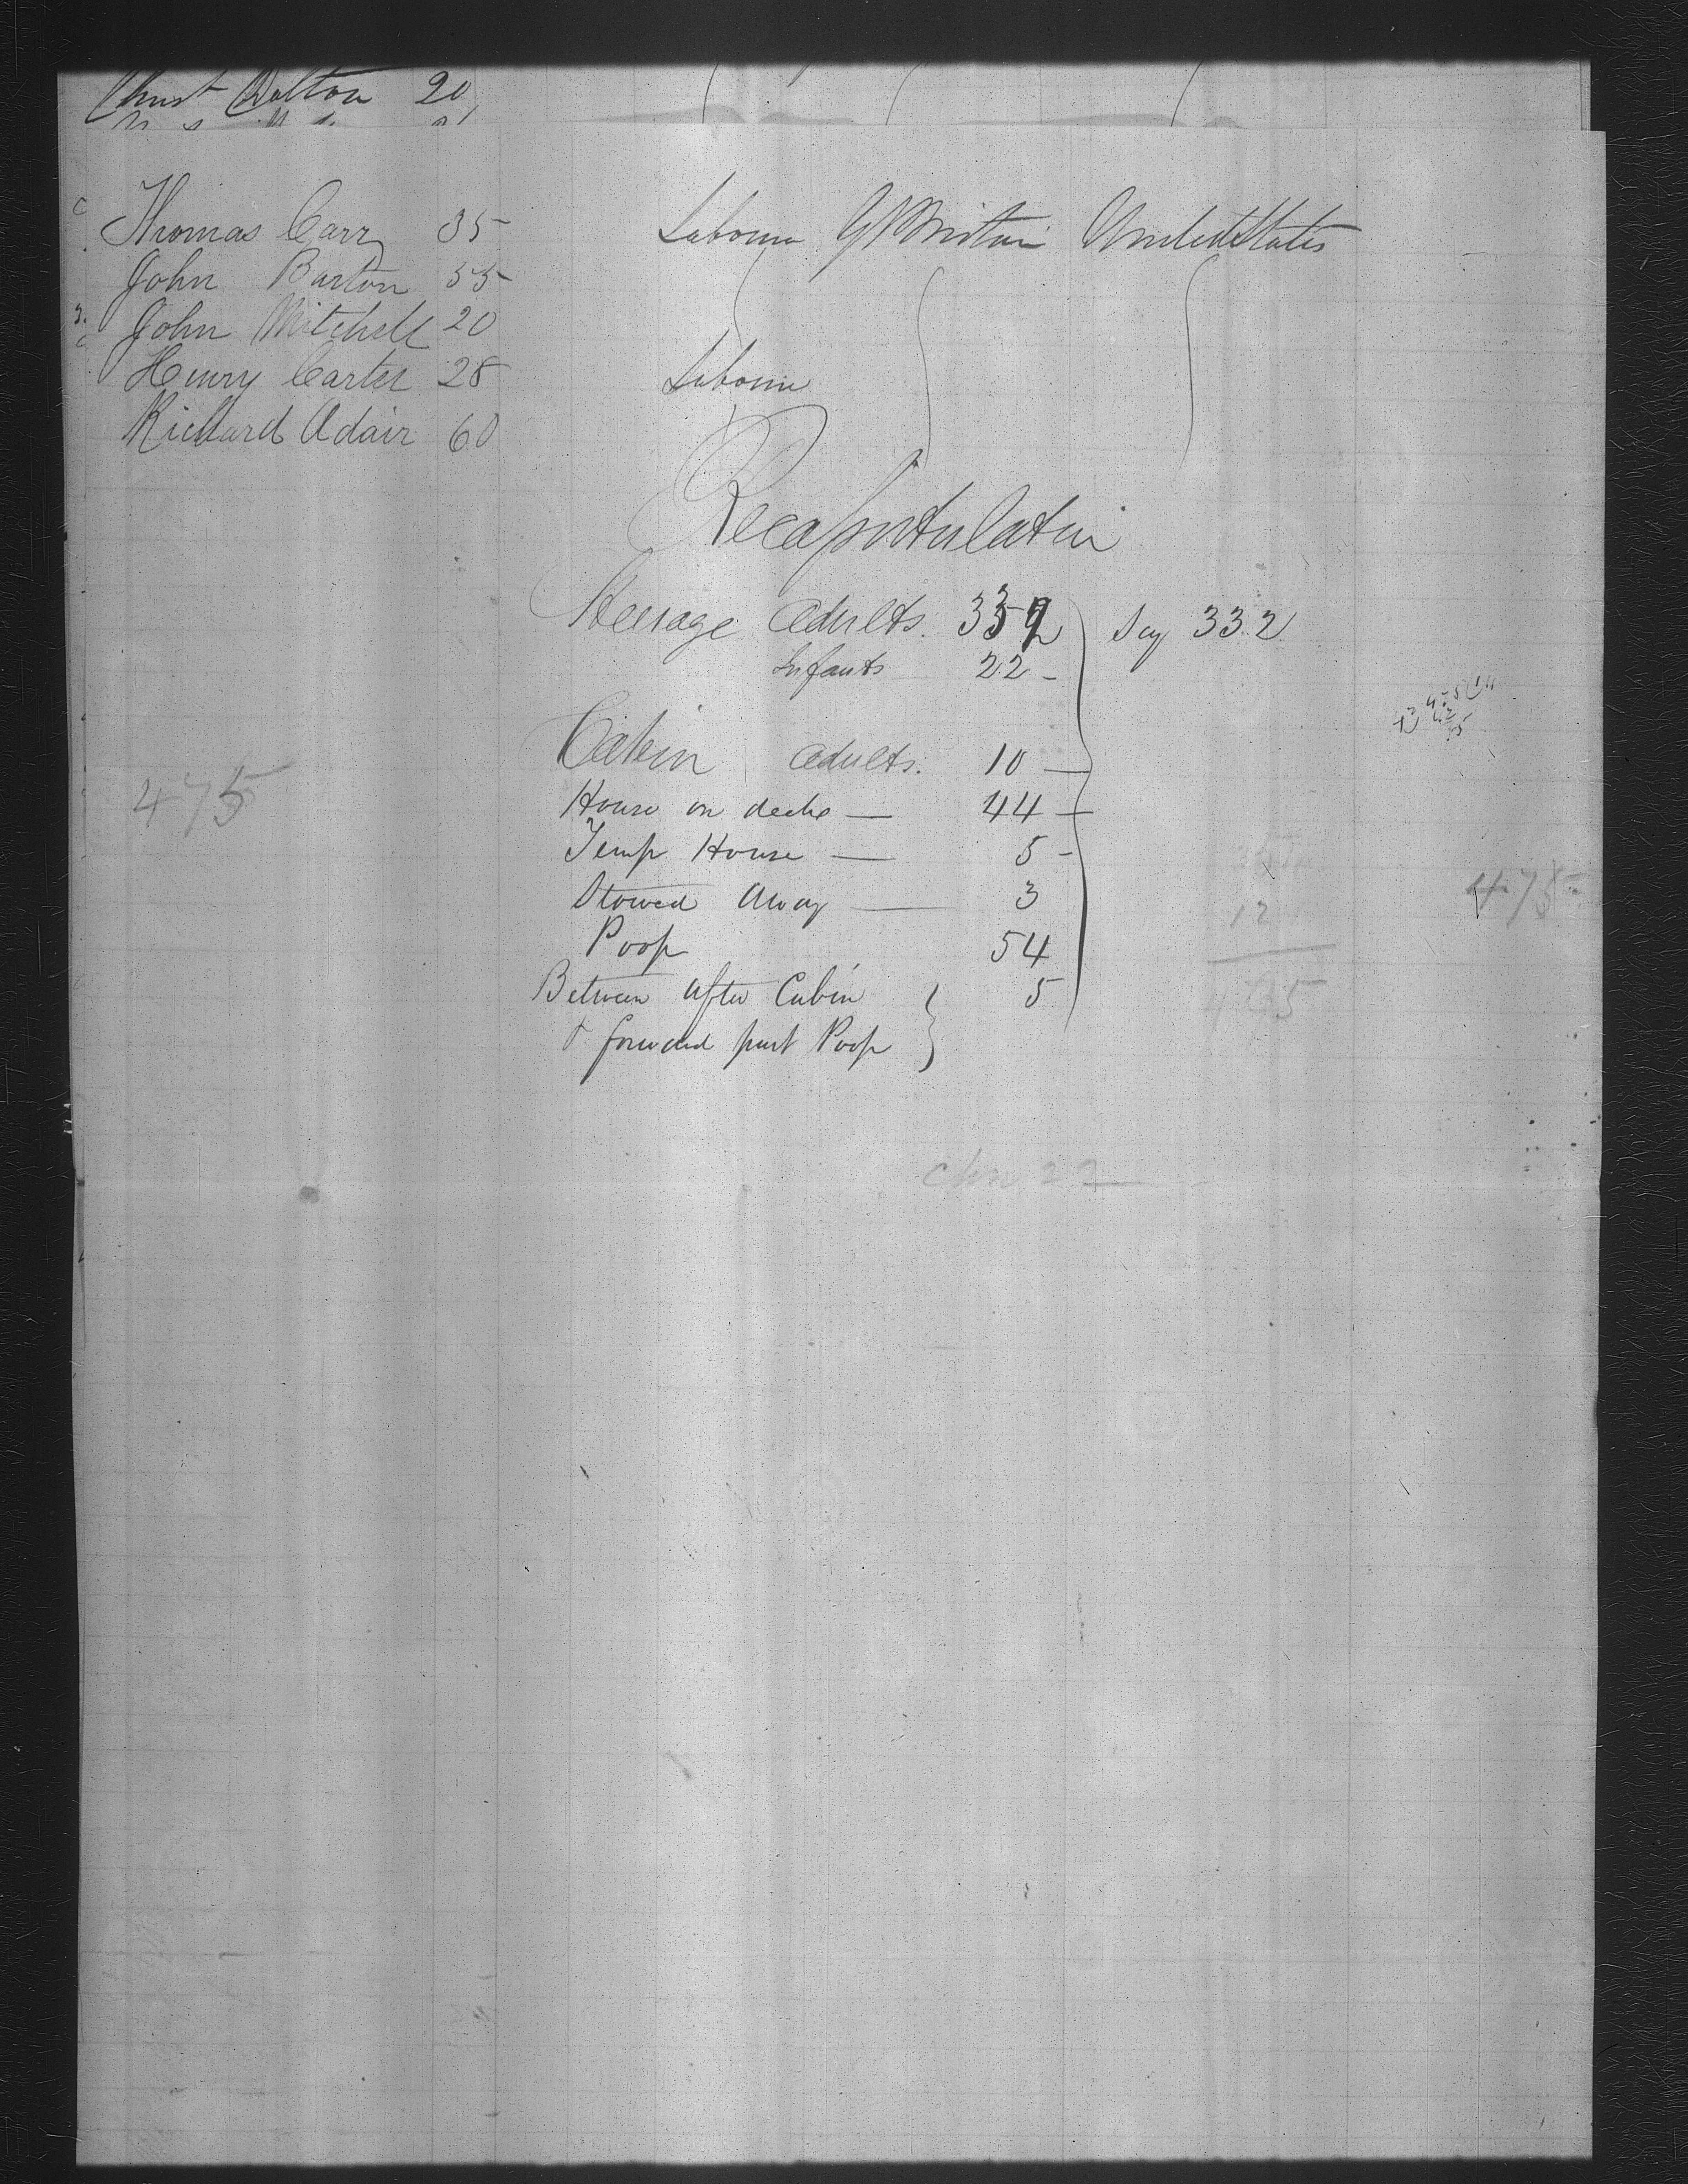 Christ Dalton 20
Thomas Carr 35 Labourer Gt Britain United States
John Burton 35
John Mitchell 20
Henry Carter 28 Labourer
Richard Adair 60
Recapitulation
Steerage adults. 332 Say 332
Infants 22
Cabin adults. 10
475
House on decks 44
Temp House 5
Stowed Away 3
475
Poop 54
12
Between after Cabin 5
& forward part Poop